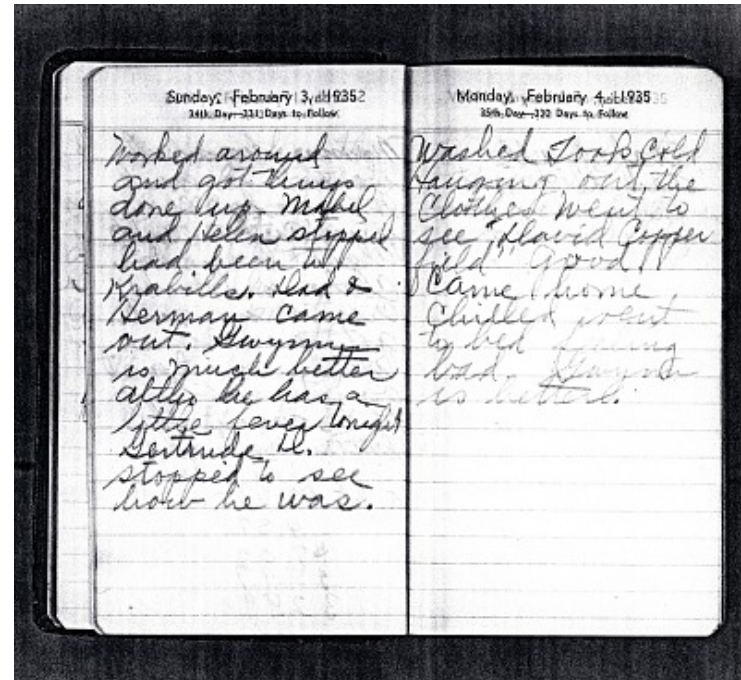 Sunday, February 3, 1935
34th Day—331 Days to Follow
Worked around
and got things
done up. Mabel
and Helen stopped
had been to
Krabills. Dad &
Herman came
out. Gwynne
is much better
altho he has a
little fever tonight
Gertrude H.
stopped to see
how he was.
Monday, February 4, 1935
35th Day—330 Days to Follow
Washed Took Cold
Hanging out the
Clothes Went to
see "David Copper
field" Good!
Came home
Chilled went
to bed feeling
bad. Gwynne
is better.